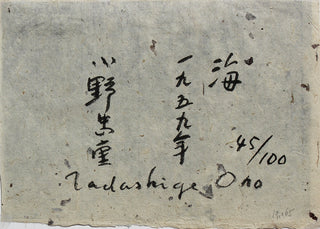 海
一九五九年
小野忠重
45/100
Tadashige Ono